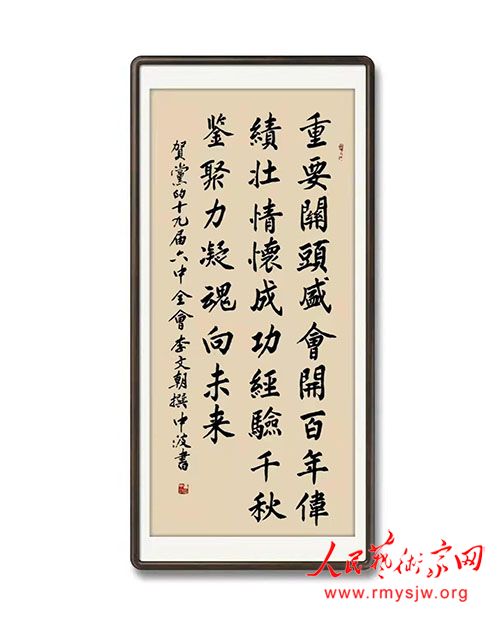 重要關頭盛會開百年偉
績壯情懷成功經驗千秋
鉴聚力凝魂向未来
賀黨的十九届六中全會李文朝撰中波書
人民艺術家网
www.rmysjw.org